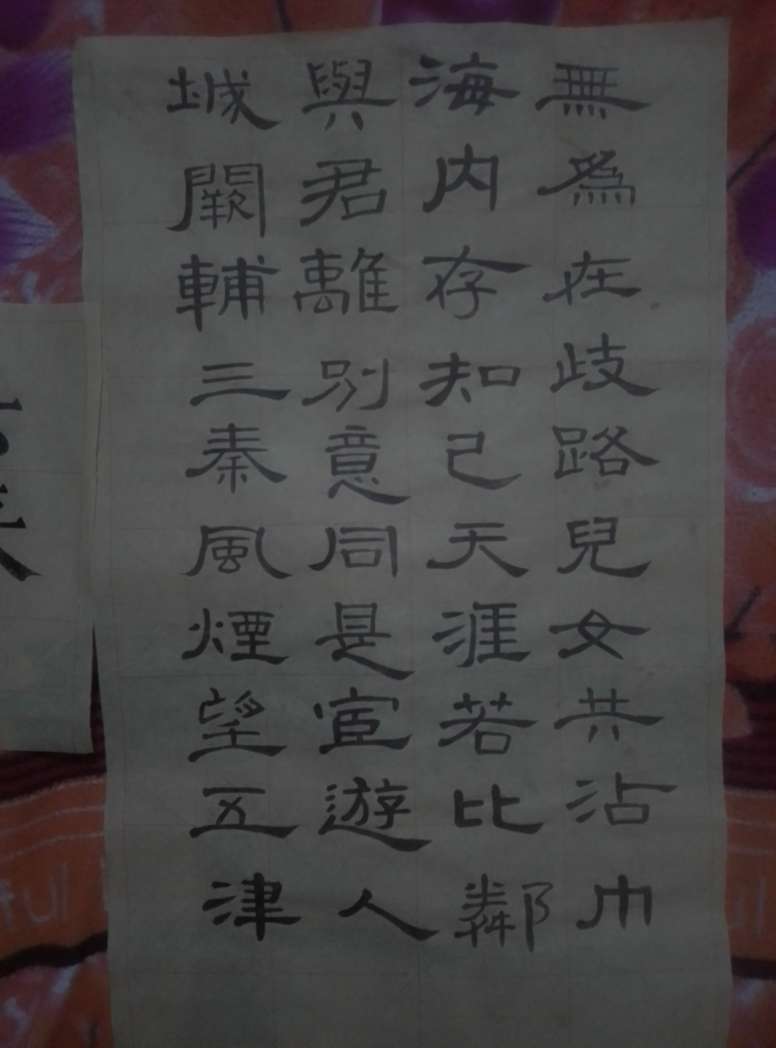 城闕輔三秦風煙望五津
與君離別意同是宦遊人
海内存知己天涯若比鄰
無爲在歧路兒女共沾巾